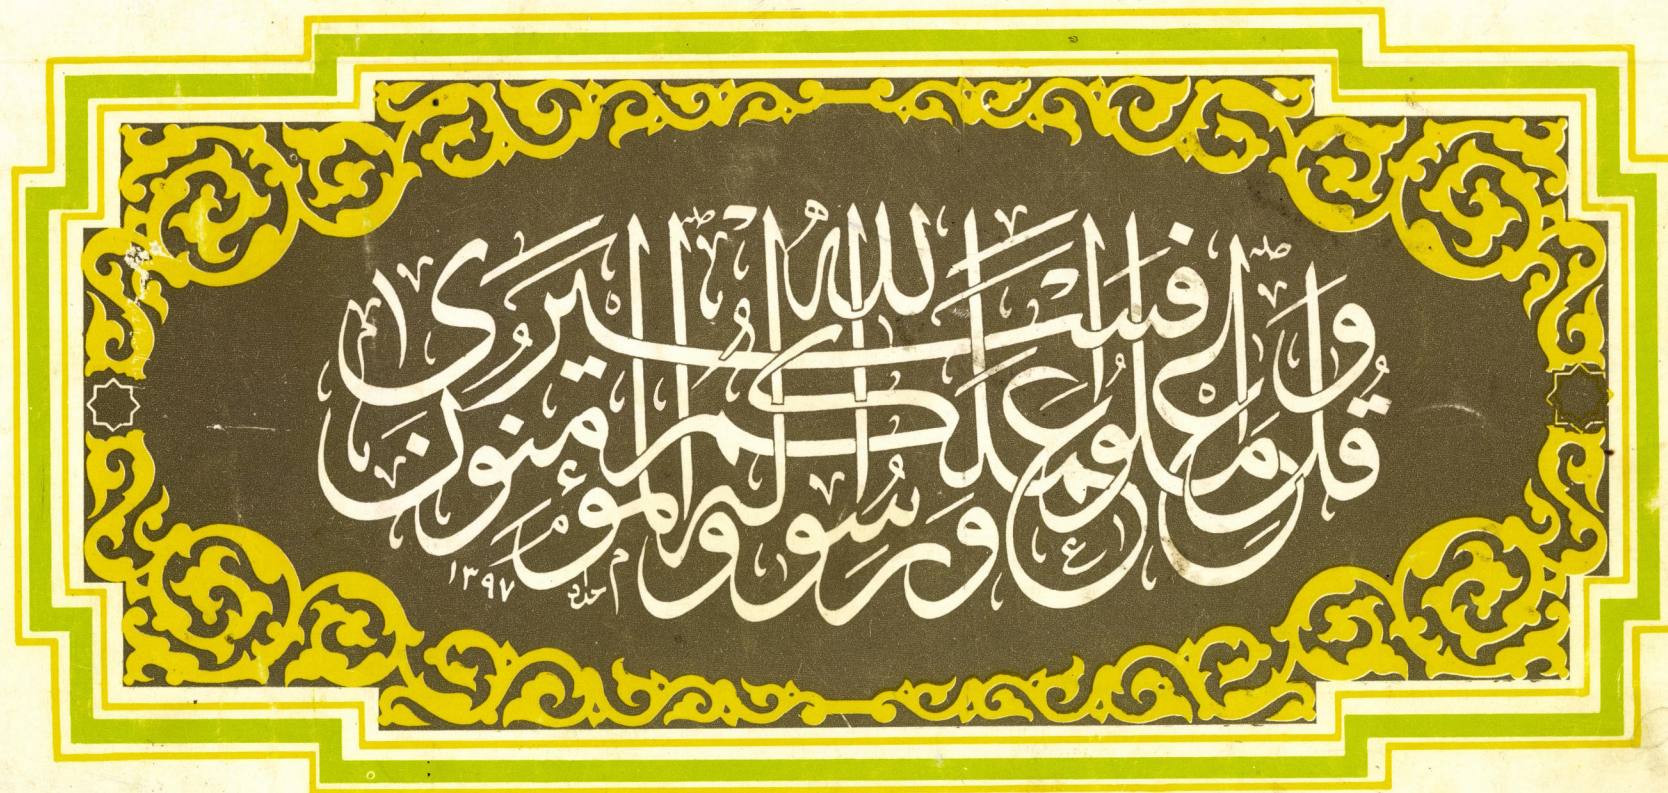 وقل اعملوا فسيرى الله عملكم ورسوله والمؤمنون
١٣٩٧